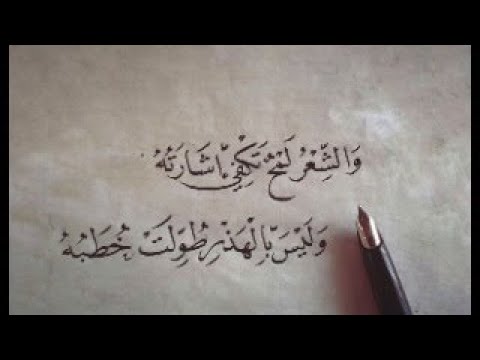 وَالشِّعْرُ لَمْحٌ تَكْفِي إِشَارَتُهُ
وَلَيْسَ بِالْهَذْرِ طُوِّلَتْ خُطَبُهُ